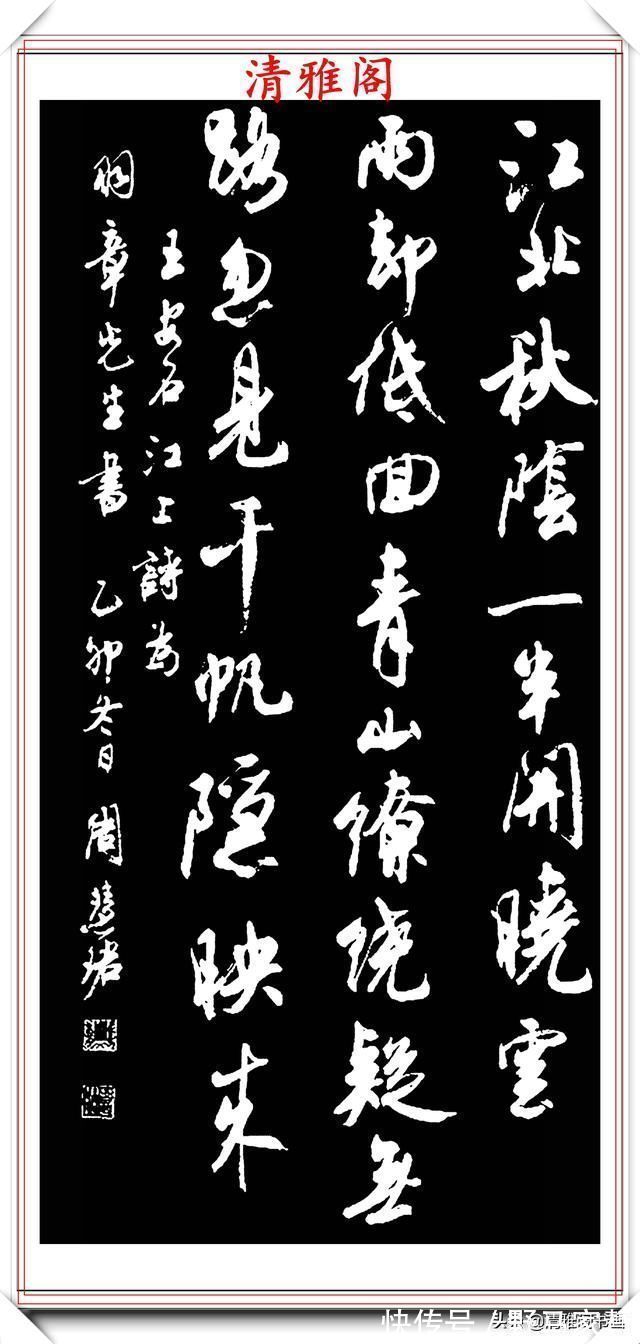 清雅阁
江北秋陰一半開曉雲
雨却低回青山繚绕疑無
路忽見千帆隱映来
王安石江上詩為
章先生書 乙卯冬日 周慧珺
头条 @清雅阁书画
快传号